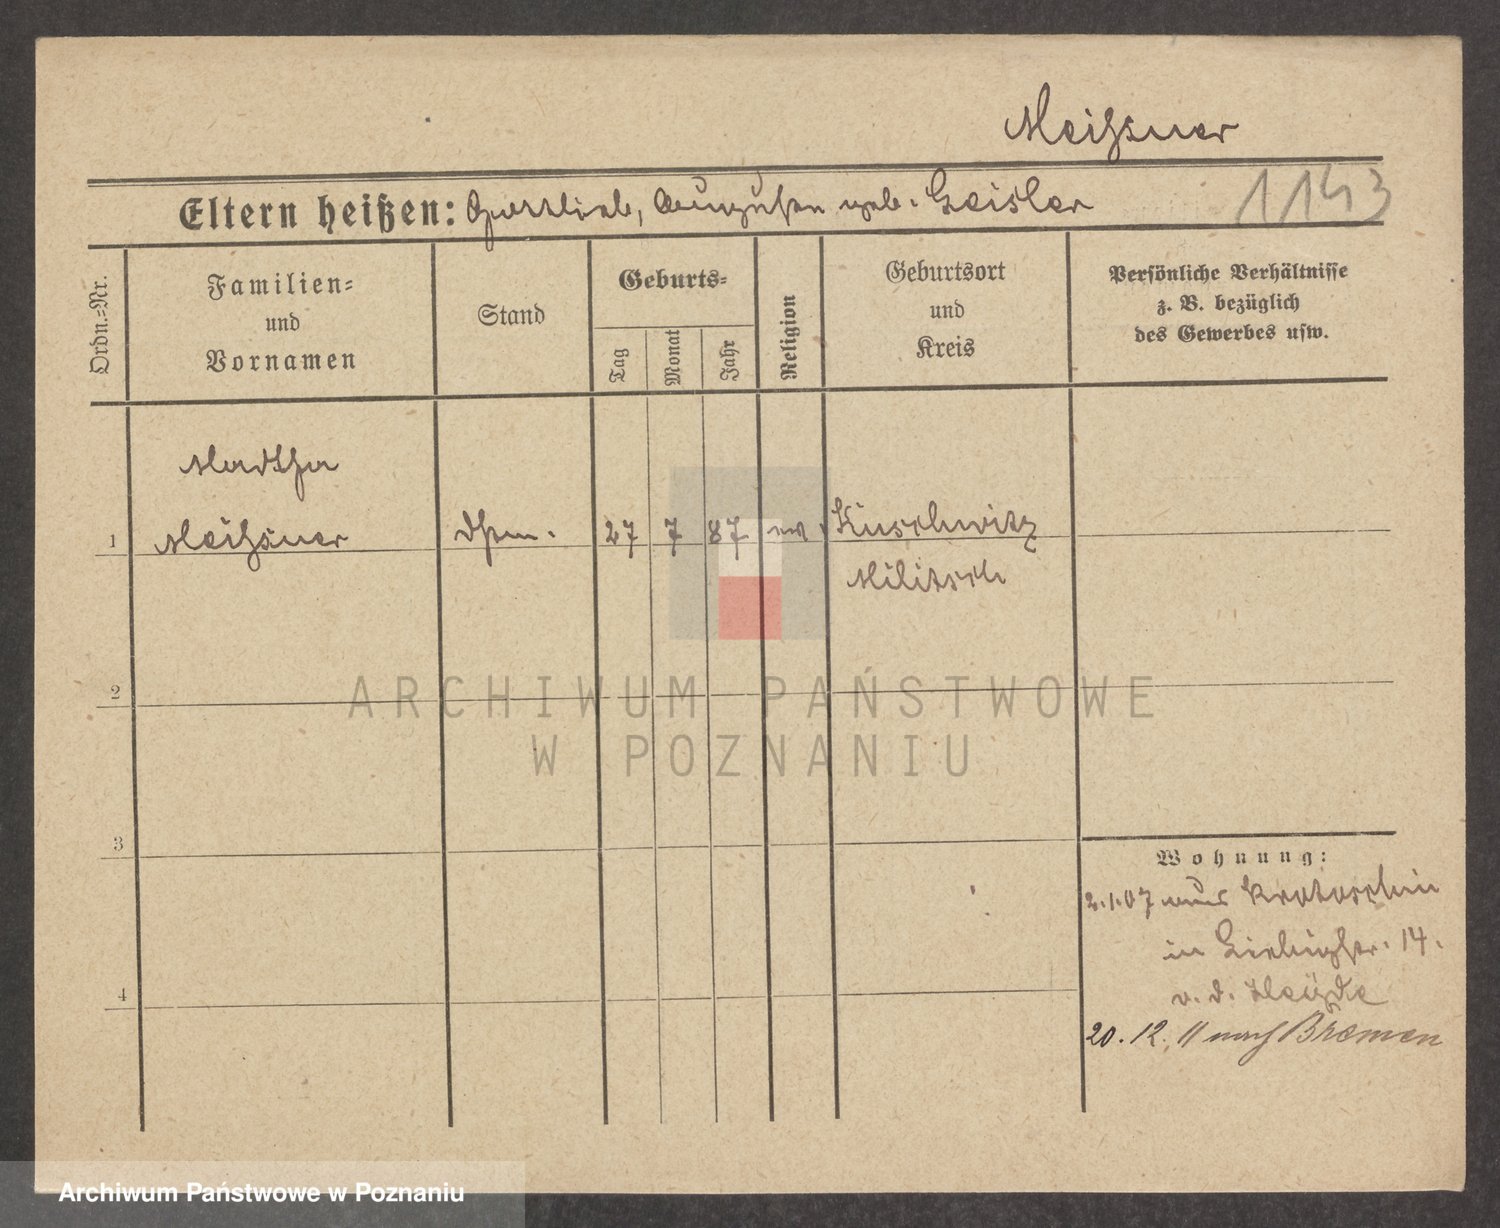 Meißner
Eltern heißen: Gottlieb, Auguste geb. Geisler
1143
Ordn.=Nr.
Familien=
und
Vornamen
Stand
Geburts=
Tag
Monat
Jahr
Religion
Geburtsort
und
Kreis
Persönliche Verhältnisse
z. B. bezüglich
des Gewerbes usw.
Martha
1 Meißner 27 7 87 ev. Kuschwitz
Militsch
2
ARCHIWUM PAŃSTWOWE
W POZNANIU
3
Wohnung:
2.1.07 aus Krotoschin
in Liebigstr. 14.
4
v. d. Heyde
20. 12. 11 nach Bremen
Archiwum Państwowe w Poznaniu